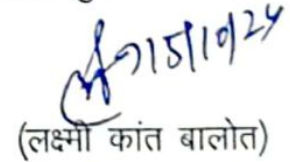 15/10/24
(लक्ष्मी कांत बालोत)